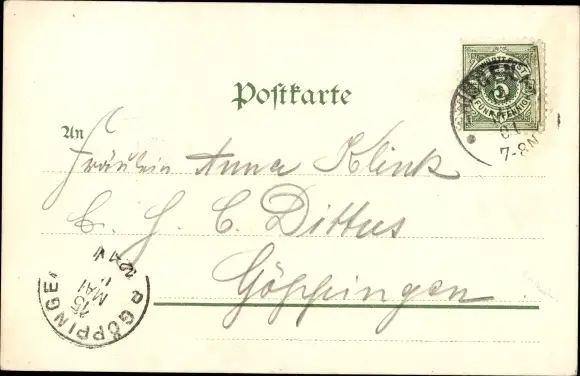 Postkarte
An
Fräulein Anna Klink
C. H. C. Dittus
Göppingen
5
FÜNF PFENNIG
7-8N
GÖPPINGEN
15
MAI